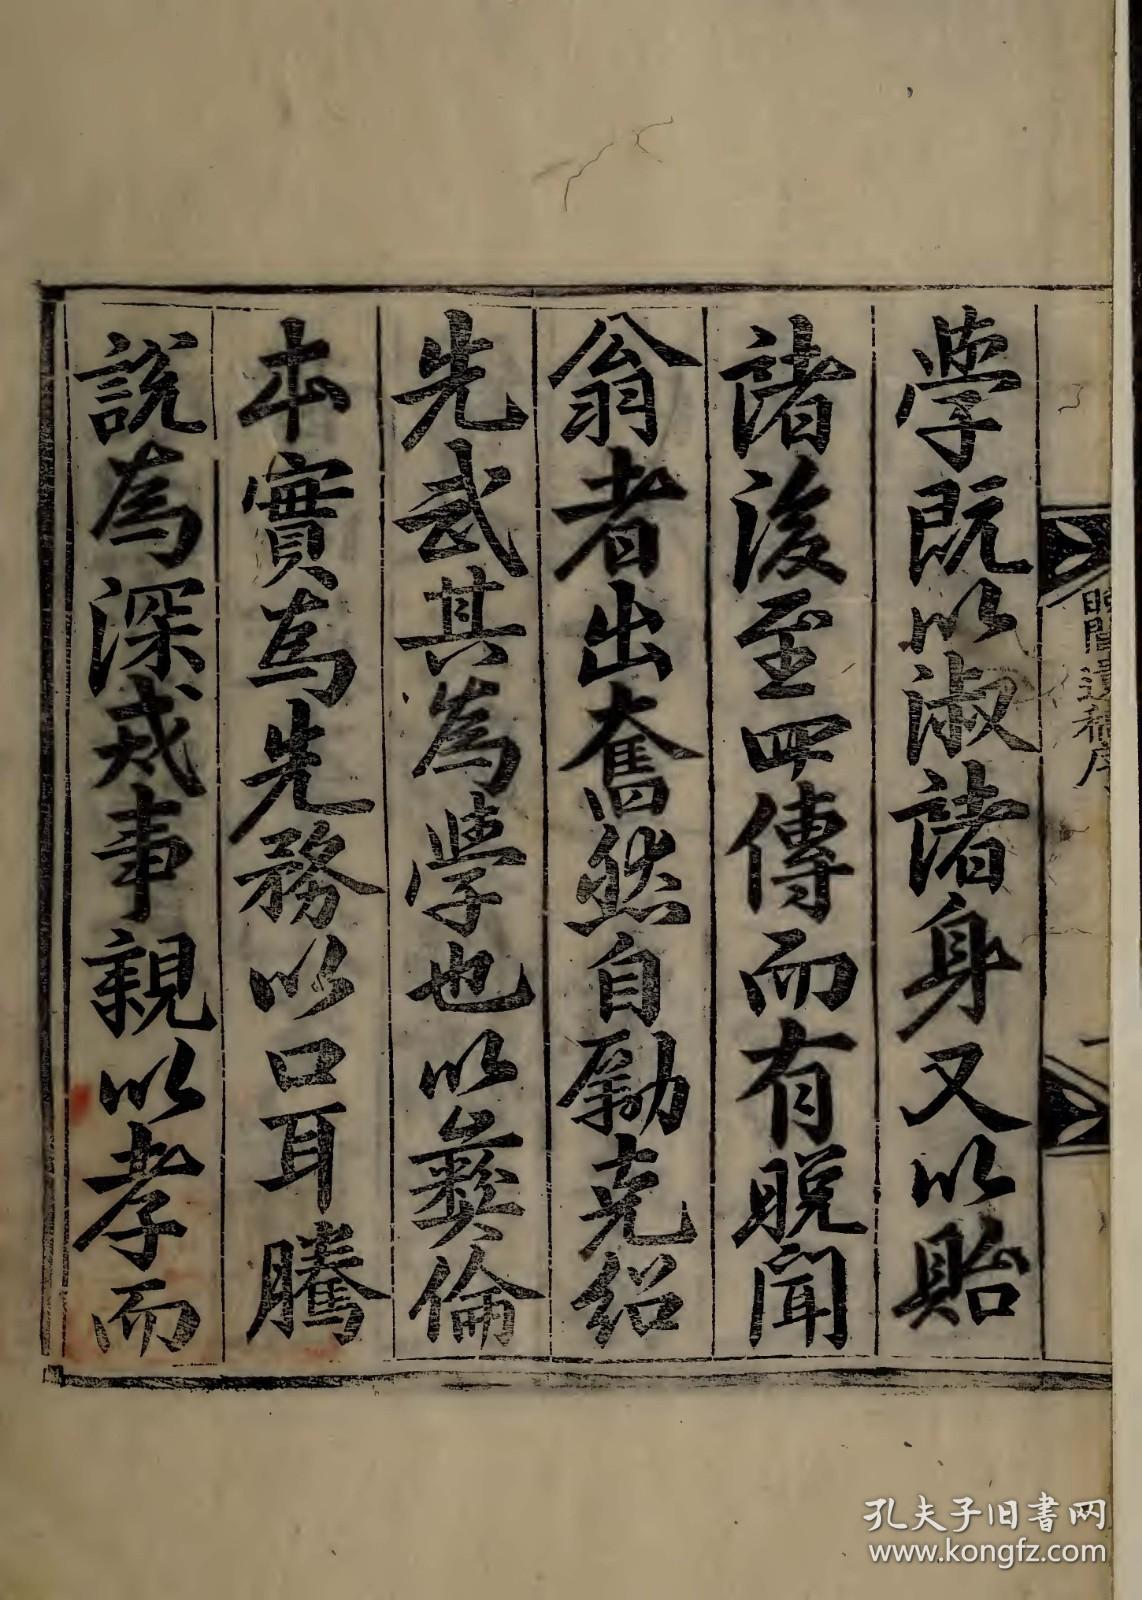 晩聞遺稿序
學既以淑諸身又以貽
諸後至四傳而有晩聞
翁者出奮然自勵克紹
先武其為學也以彝倫
本實為先務以口耳騰
說為深戒事親以孝而
孔夫子旧书网
www.kongfz.com